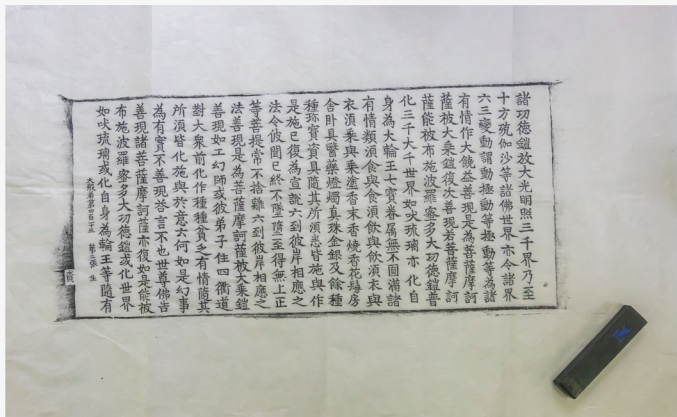 諸功德鎧放大光明照三千界乃至
十方殑伽沙等諸佛世界亦令諸界
六三變動謂動極動等極動等為諸
有情作大饒益善現是為菩薩摩訶
薩被大乘鎧復次善現若菩薩摩訶
薩能被布施波羅蜜多大功德鎧普
化三千大千世界如吠琉璃亦化自
身為大輪王七寶眷屬無不圓滿諸
有情類須食與食須飲與飲須衣與
衣須乘與乘塗香末香燒香花鬘房
舍臥具醫藥燈燭真珠金銀及餘種
種珍寶資具隨其所須悉皆施與作
是施已復為宣說六到彼岸相應之
法令彼聞已終不墜墮至得無上正
等菩提常不捨離六到彼岸相應之
法善現是為菩薩摩訶薩被大乘鎧
善現如工幻師或彼弟子住四衢道
對大眾前化作種種貧乏有情隨其
所須皆化施與於意云何如是幻事
為有實不善現答言不也世尊佛告
善現諸菩薩摩訶薩亦復如是能被
布施波羅蜜多大功德鎧或化世界
如吠琉璃或化自身為輪王等隨有
大般若第四百十三 第三張